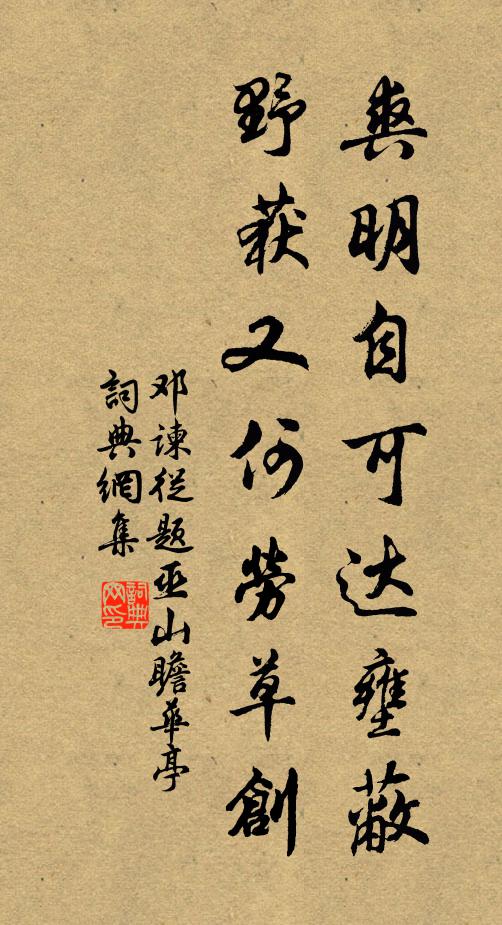 爽明自可达壅蔽
野获又何劳草創
邓諫從题巫山瞻華亭
詞典網集
詞典网印